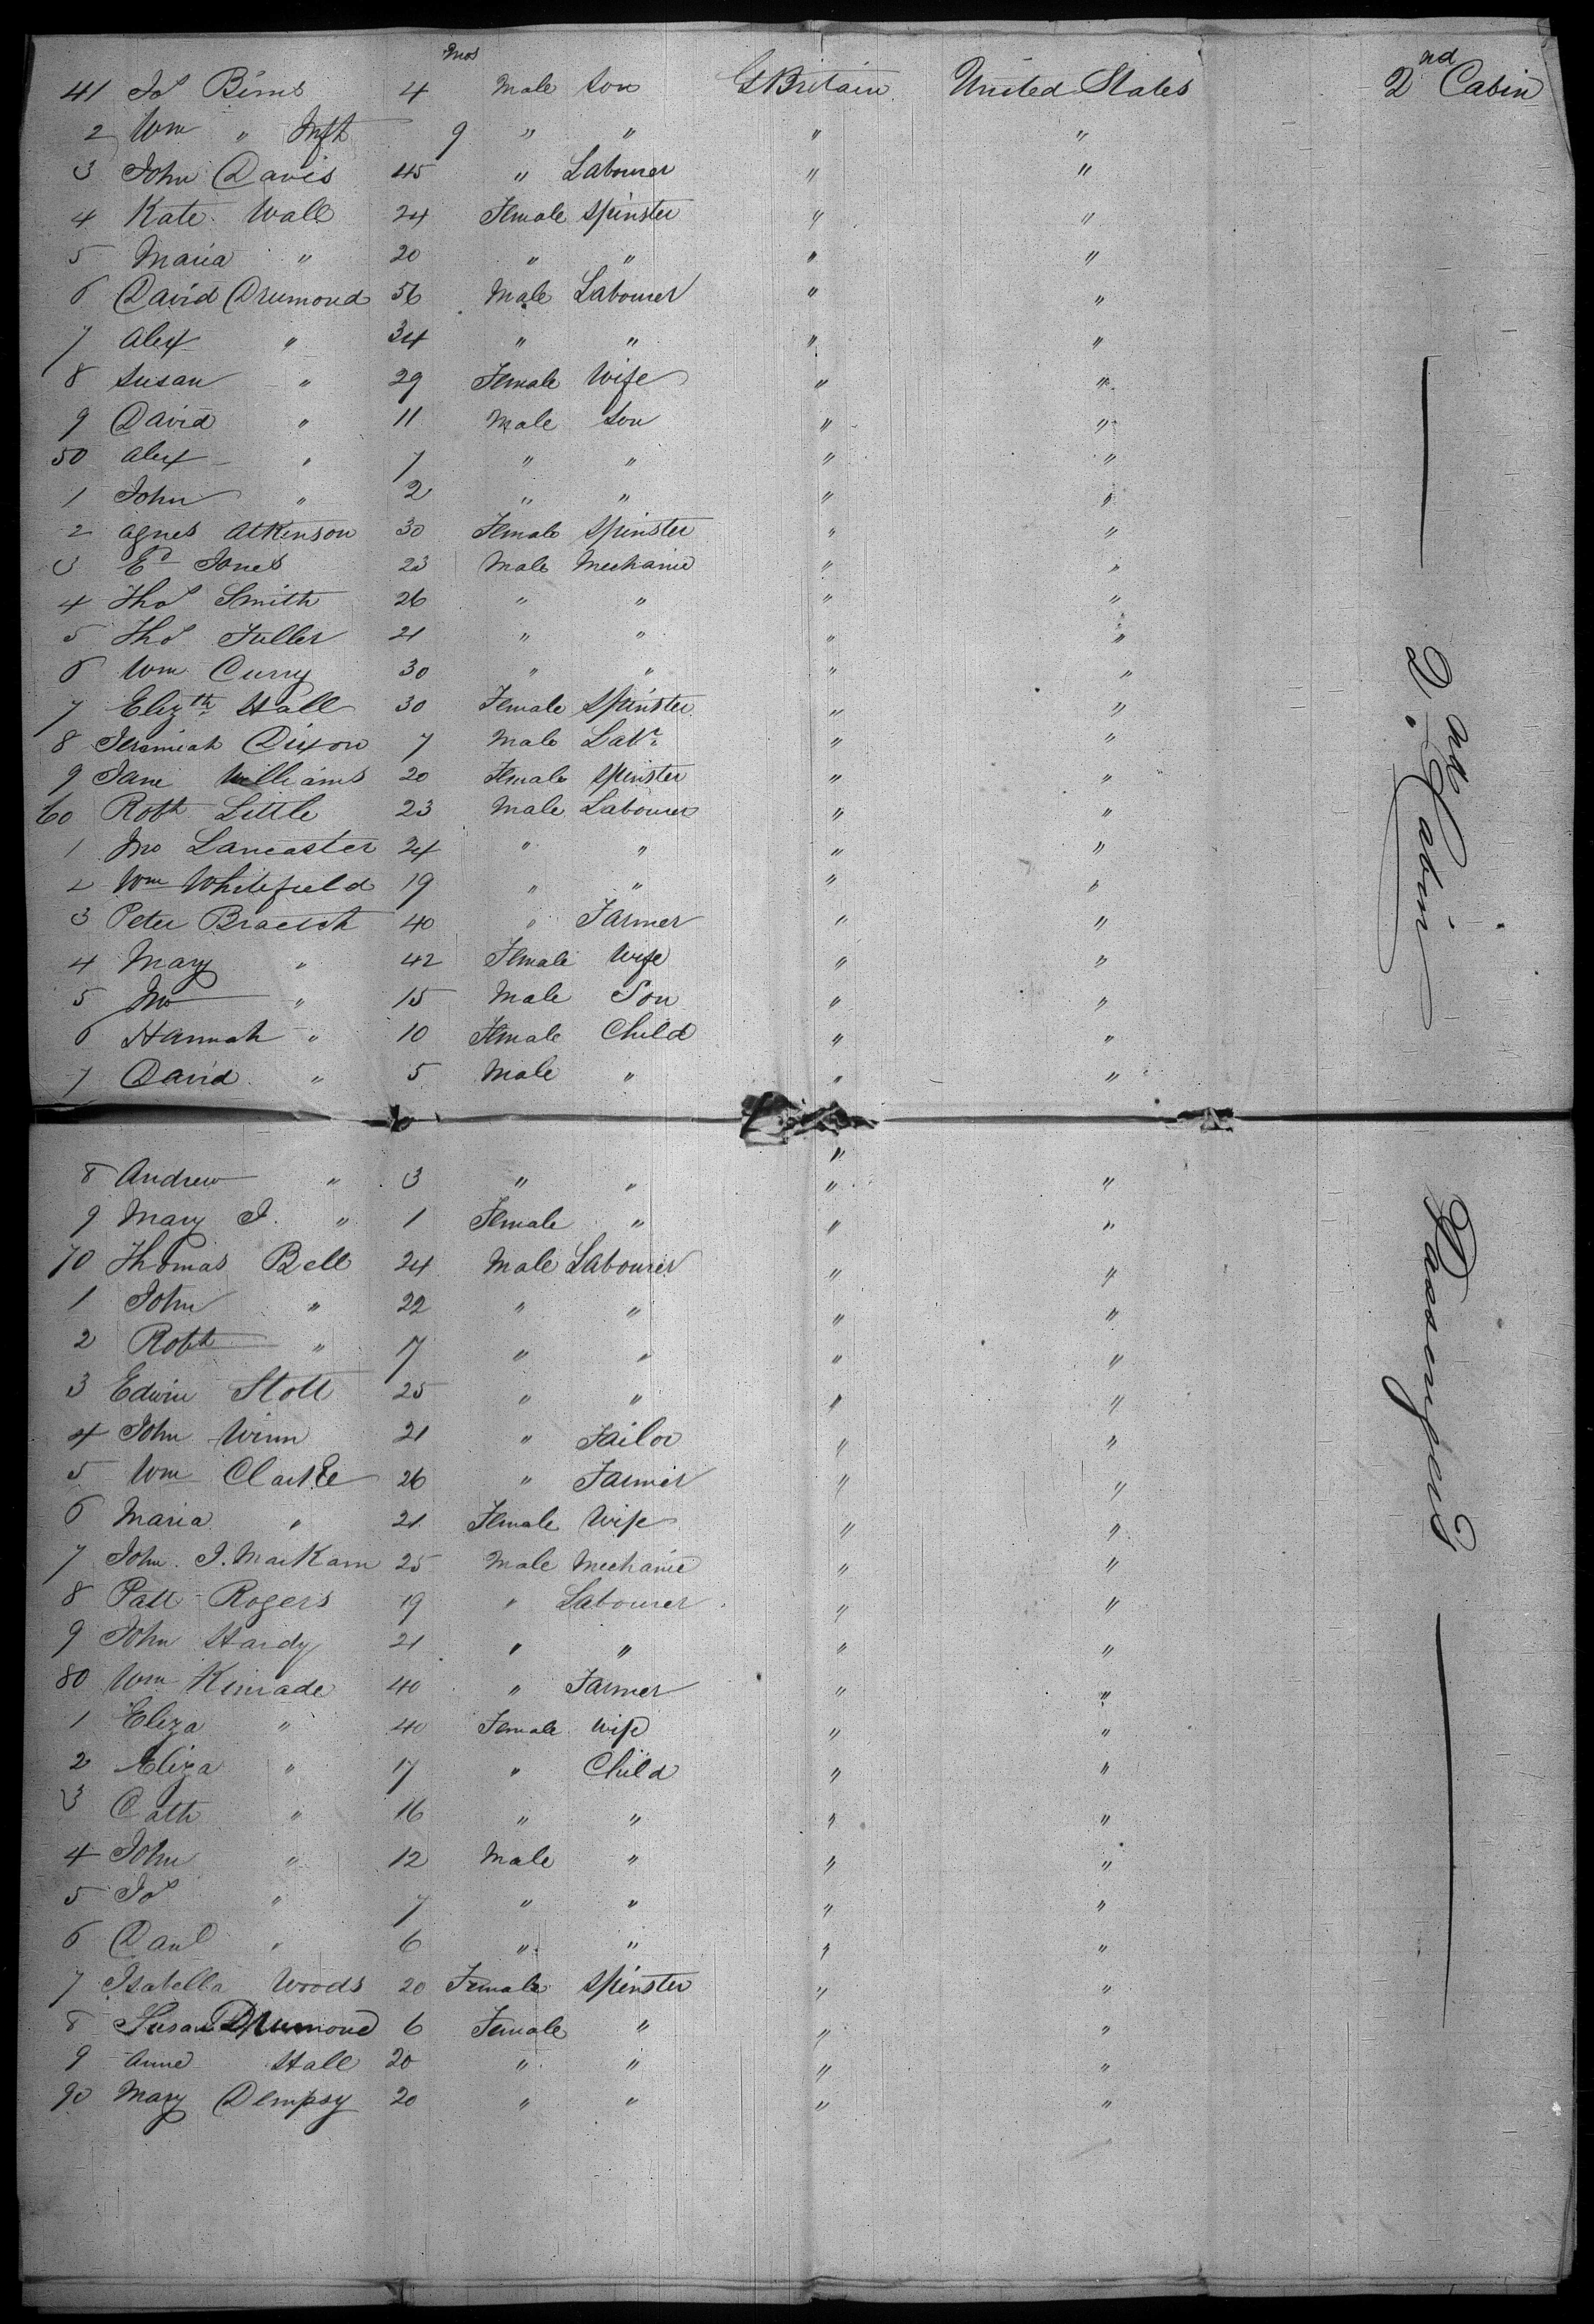 Mos
41 Jos Bims 4 Male Son Gt Britain United States 2nd Cabin
2 Wm " Inft 9 " " " "
3 John Davis 45 " Labourer " "
4 Kate Wall 24 Female Spinster " "
5 Maria " 20 " " " "
6 David Drumond 56 Male Labourer " "
7 Alex " 34 " " " "
8 Susan " 29 Female Wife " "
9 David " 11 Male Son " "
50 Alex " 7 " " " "
1 John " 2 " " " "
2 Agnes Atkinson 30 Female Spinster " "
3 Ed Jones 23 Male Mechanic " "
4 Thos Smith 26 " " " "
5 Thos Fuller 21 " " " "
6 Wm Curry 30 " " " "
7 Elizth Hall 30 Female Spinster " "
8 Jeremiah Dixon 7 Male Labr " "
9 Jane Williams 20 Female Spinster " "
60 Robt Little 23 Male Labourer " "
1 Jno Lancaster 24 " " " "
2 Wm Whitefield 19 " " " "
3 Peter 40 " Farmer " "
4 Mary " 42 Female Wife " "
5 Jno " 15 Male Son " "
6 Hannah " 10 Female Child " "
7 David " 5 Male " " "
"
8 Andrew " 3 " " " "
9 Mary J. " 1 Female " " "
70 Thomas Bell 24 Male Labourer " "
1 John " 22 " " " "
2 Robt " 17 " " " "
3 Edwin Stott 25 " " " "
4 John Winn 21 " Tailor " "
5 Wm Clarke 26 " Farmer " "
6 Maria " 21 Female Wife " "
7 John J. Markam 25 Male Mechanic " "
8 Patt Rogers 19 " Labourer " "
9 John Hardy 21 " " " "
80 Wm Kinrade 40 " Farmer " "
1 Eliza " 40 Female Wife " "
2 Eliza " 17 " Child " "
3 Cath " 16 " " " "
4 John " 12 Male " " "
5 Jos " 7 " " " "
6 Danl " 6 " " " "
7 Isabella Woods 20 Female Spinster " "
8 Susan Drumond 6 Female " " "
9 Anne Hall 20 " " " "
90 Mary Dempsy 20 " " " "
2nd Cabin Passengers